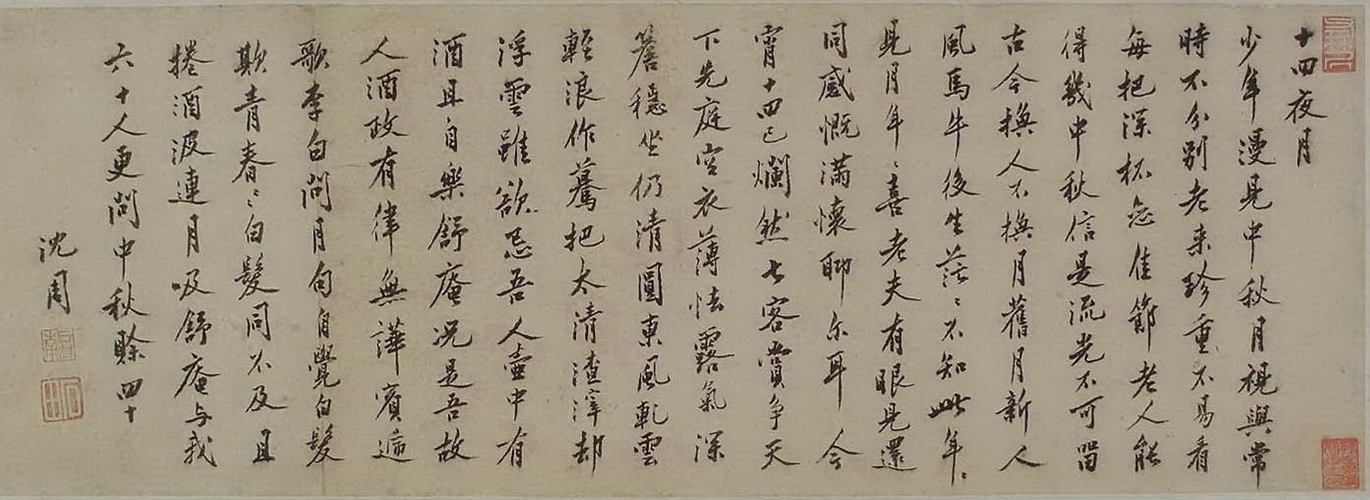 十四夜月
少年漫見中秋月視與常
時不分別老來珍重不易看
每把深杯恋佳節老人能
得幾中秋信是流光不可留
古今換人不換月舊月新人
風馬牛後生茫〻不知此年〻
見月年〻喜老夫有眼見還
同感慨滿懷聊尔耳今
宵十四已爛然七客賞爭天
下先庭空衣薄怯露氣深
簷穩坐仍清圓東風軋雲
輕浪作驀把太清渣滓却
浮雲雖欲忌吾人壺中有
酒且自樂舒庵況是吾故
人酒政有律無譁賓遍
歌李白問月句自覺白髮
欺青春〻白髮同不及且
捲酒波連月吸舒庵与我
六十人更問中秋賒四十
沈周